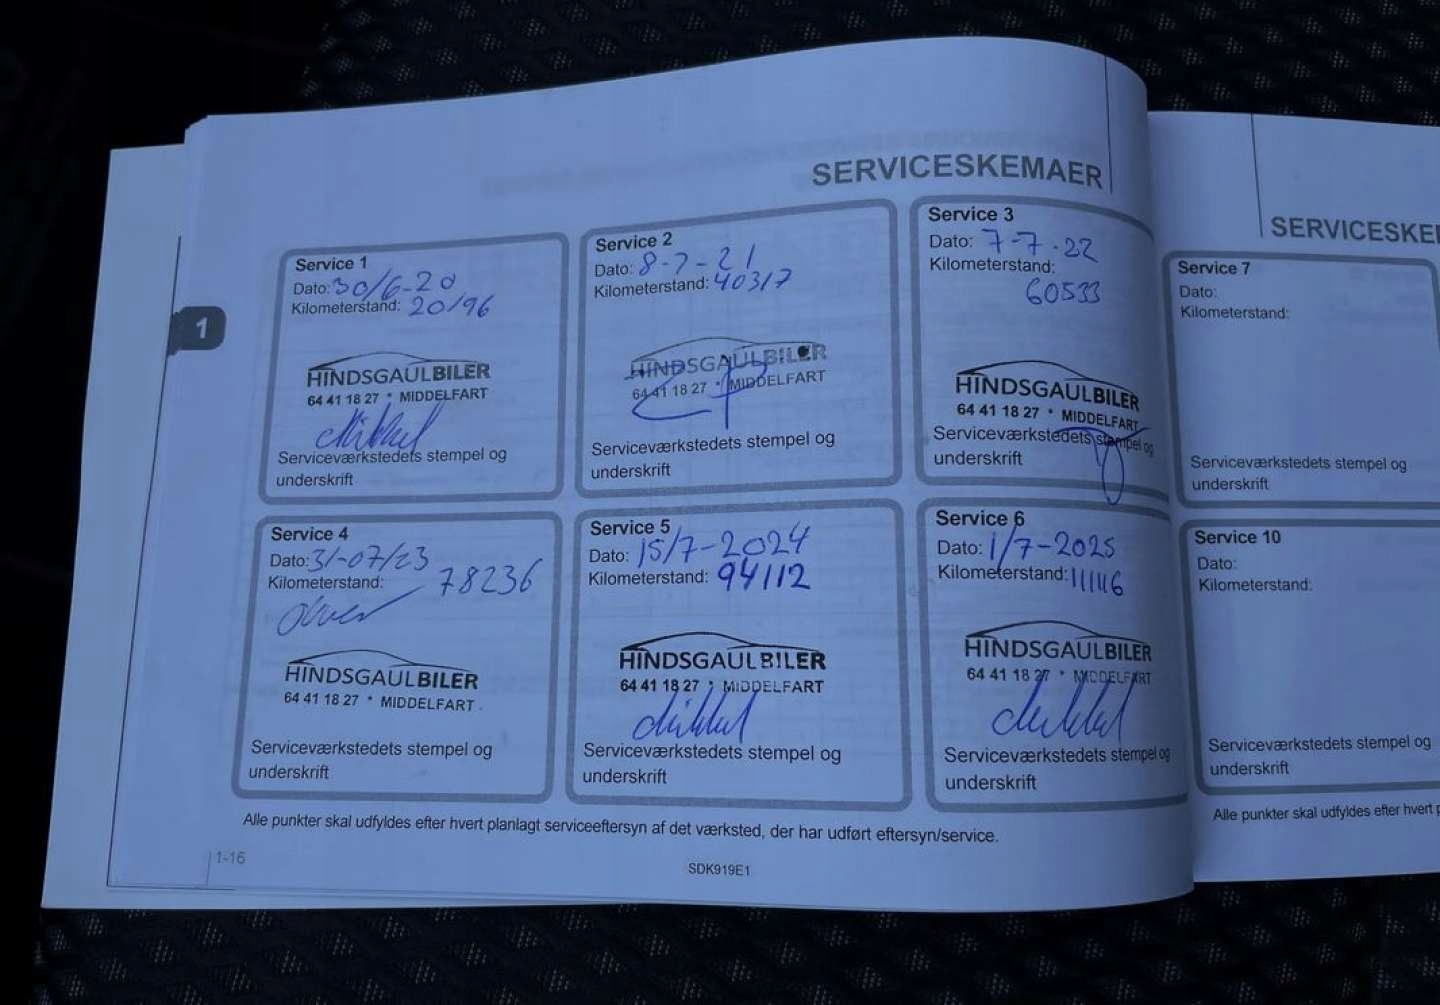 SERVICESKEMAER
1
Service 1
Dato: 30/6-20
Kilometerstand: 20196
HINDSGAULBILER
64 41 18 27 * MIDDELFART
Mikkel
Serviceværkstedets stempel og
underskrift
Service 2
Dato: 8-7-21
Kilometerstand: 40317
HINDSGAULBILER
64 41 18 27 * MIDDELFART
Serviceværkstedets stempel og
underskrift
Service 3
Dato: 7-7-22
Kilometerstand:
60533
HINDSGAULBILER
64 41 18 27 * MIDDELFART
Serviceværkstedets stempel og
underskrift
Service 4
Dato: 31-07/23
Kilometerstand: 78236
HINDSGAULBILER
64 41 18 27 * MIDDELFART
Serviceværkstedets stempel og
underskrift
Service 5
Dato: 15/7-2024
Kilometerstand: 94112
HINDSGAULBILER
64 41 18 27 * MIDDELFART
Mikkel
Serviceværkstedets stempel og
underskrift
Service 6
Dato: 1/7-2025
Kilometerstand: 111116
HINDSGAULBILER
64 41 18 27 * MIDDELFART
Mikkel
Serviceværkstedets stempel og
underskrift
Alle punkter skal udfyldes efter hvert planlagt serviceeftersyn af det værksted, der har udført eftersyn/service.
1-16
SDK919E1
SERVICESKE
Service 7
Dato:
Kilometerstand:
Serviceværkstedets stempel og
underskrift
Service 10
Dato:
Kilometerstand:
Serviceværkstedets stempel og
underskrift
Alle punkter skal udfyldes efter hvert p